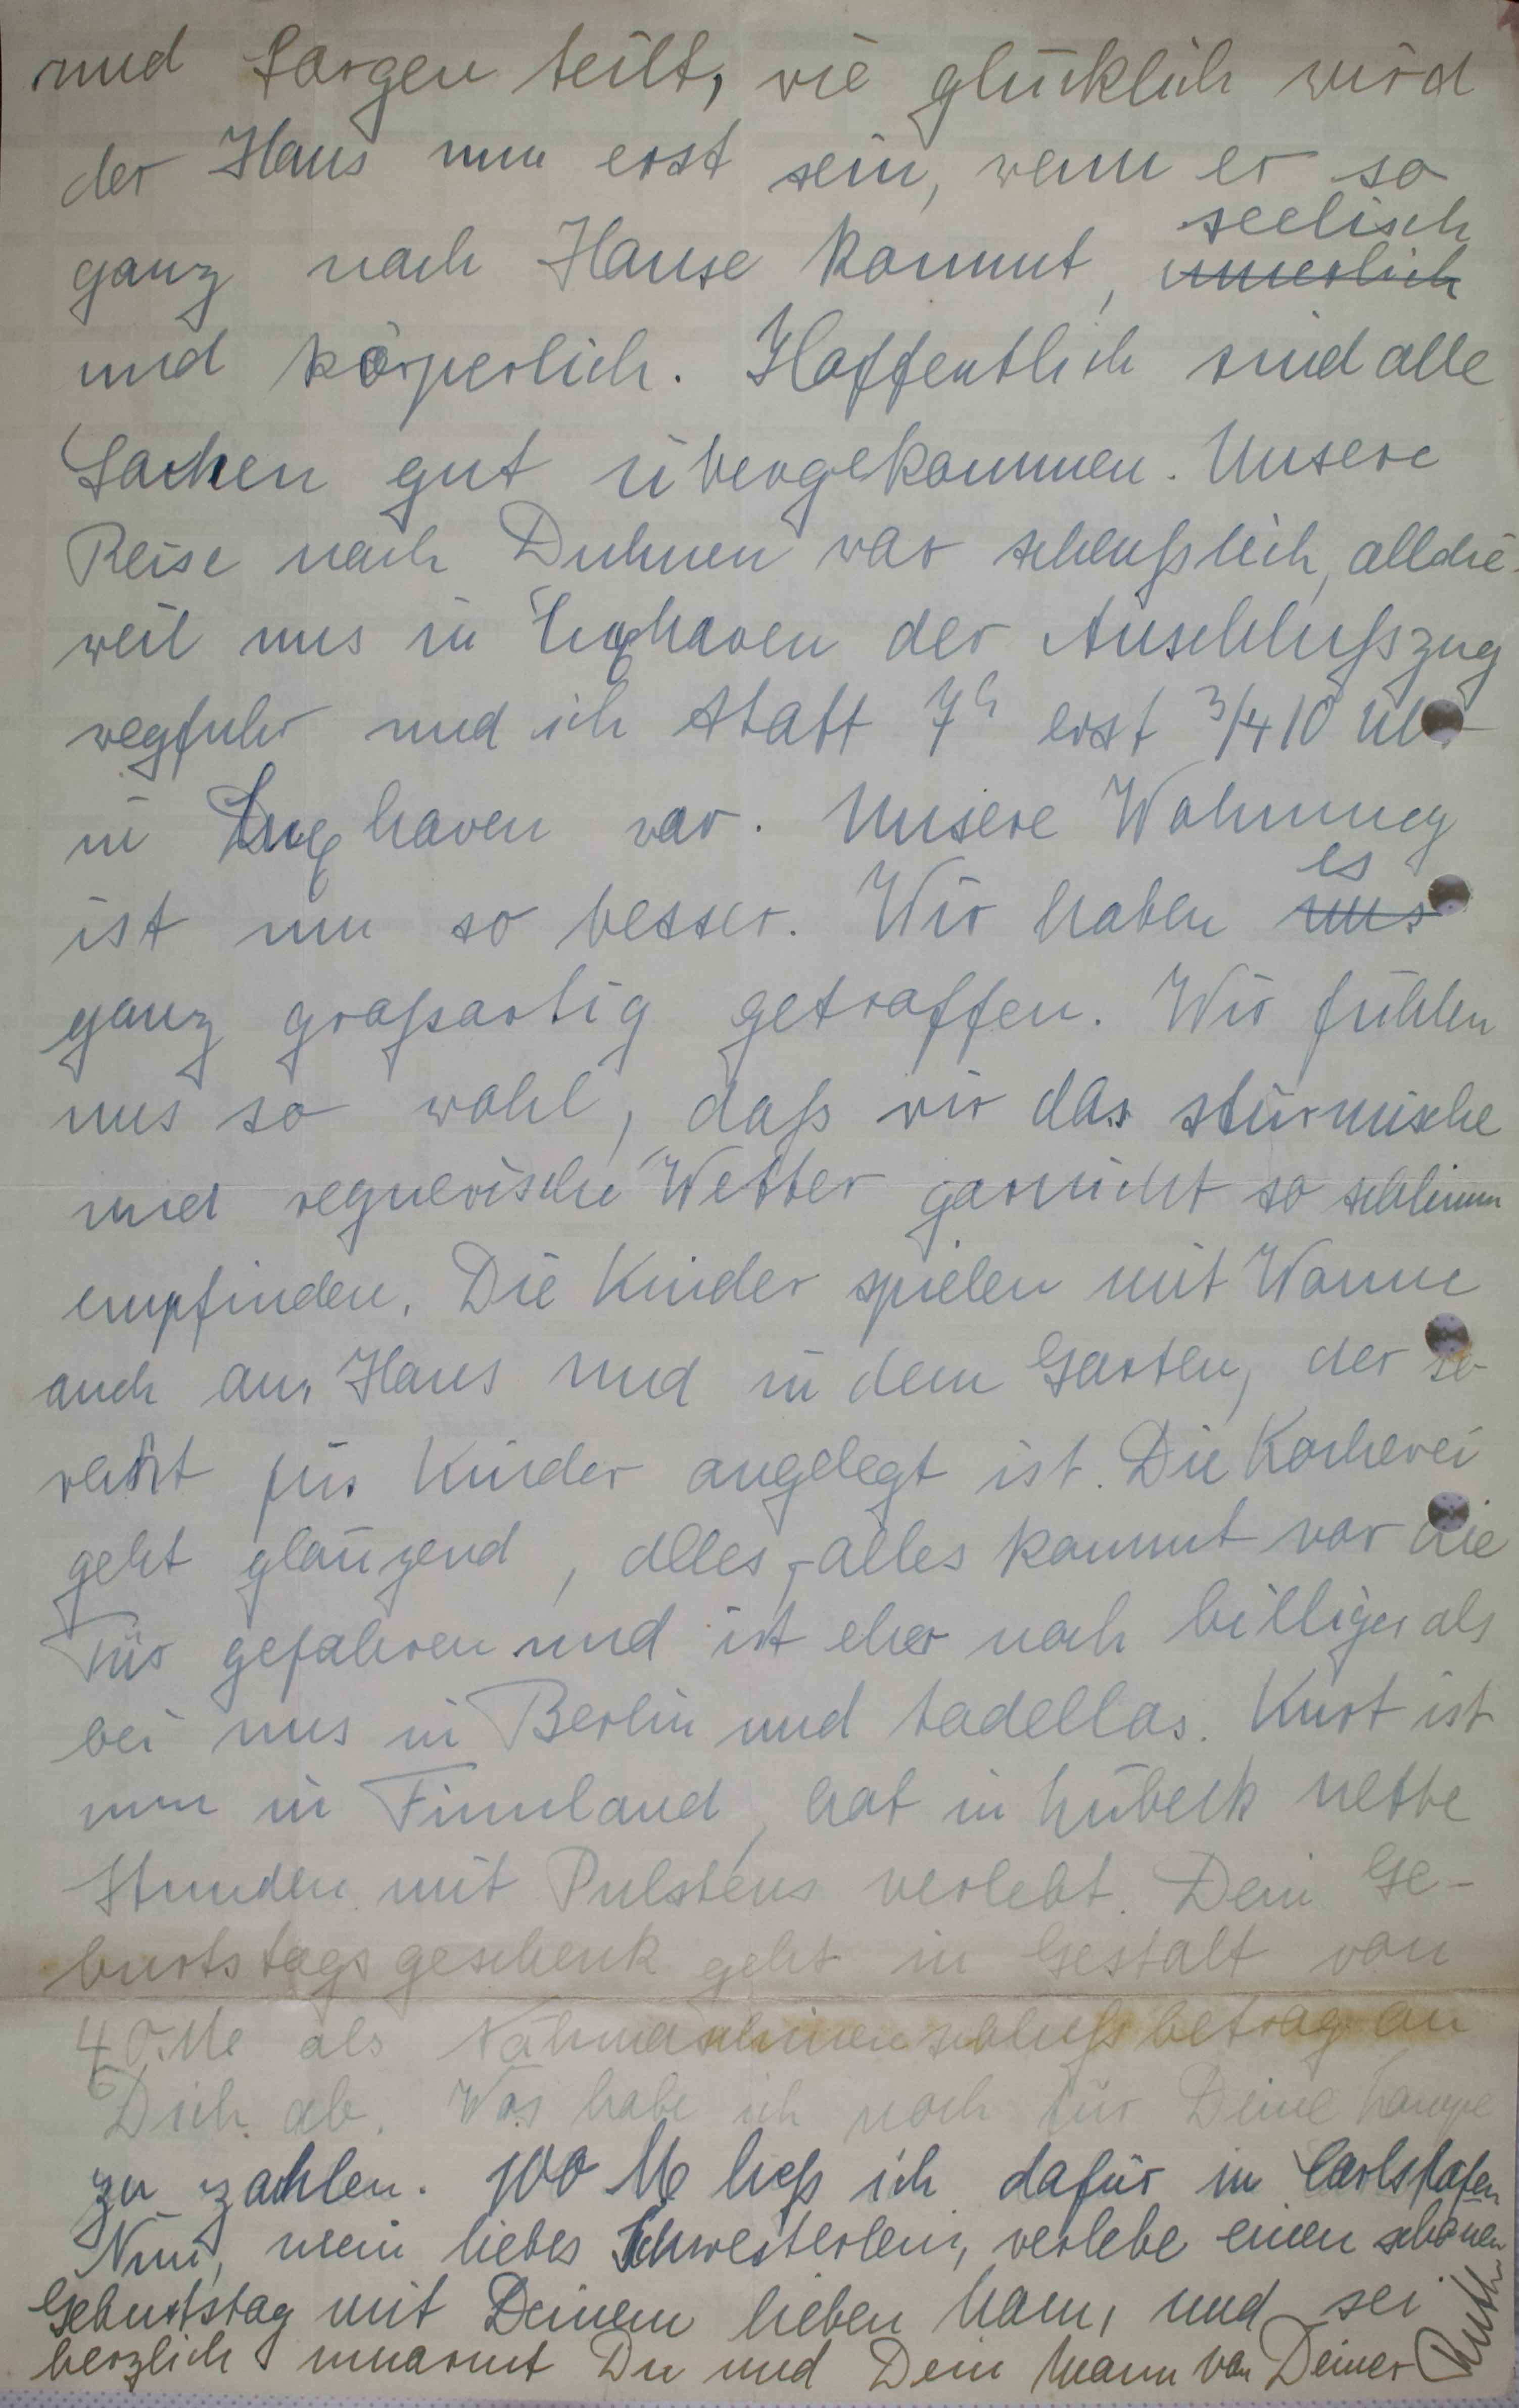 und Sorgen teilt, wie glücklich wird
der Hans nun erst sein, wenn er so
ganz nach Hause kommt, seelisch
und körperlich. Hoffentlich sind alle
Sachen gut übergekommen. Unsere
Reise nach Duhnen war scheußlich, alldie-
weil uns in Cuxhaven der Anschlußzug
wegfuhr und ich statt 7h erst 3/4 10 Uhr
in Cuxhaven war. Unsere Wohnung
ist um so besser. Wir haben es
ganz großartig getroffen. Wir fühlen
uns so wohl, daß wir das stürmische
und regnerische Wetter garnicht so schlimm
empfinden. Die Kinder spielen mit Wonne
auch am Haus und in dem Garten, der so
recht für Kinder angelegt ist. Die Kocherei
geht glänzend, alles, alles kommt vor die
Tür gefahren und ist eher noch billiger als
bei uns in Berlin und tadellos. Kurt ist
nun in Finnland, hat in Lübeck nette
Stunden mit Pulstens verlebt. Dein Ge-
burtstagsgeschenk geht in Gestalt von
40 M als Nähmaschinenschlußbetrag an
Dich ab. Was habe ich noch für Deine Lampe
zu zahlen. 100 M ließ ich dafür in Carlshafen
Nun, mein liebes Schwesterlein, verlebe einen schönen
Geburtstag mit Deinem lieben Mann, und sei
herzlich umarmt Du und Dein Mann von Deiner Ruth